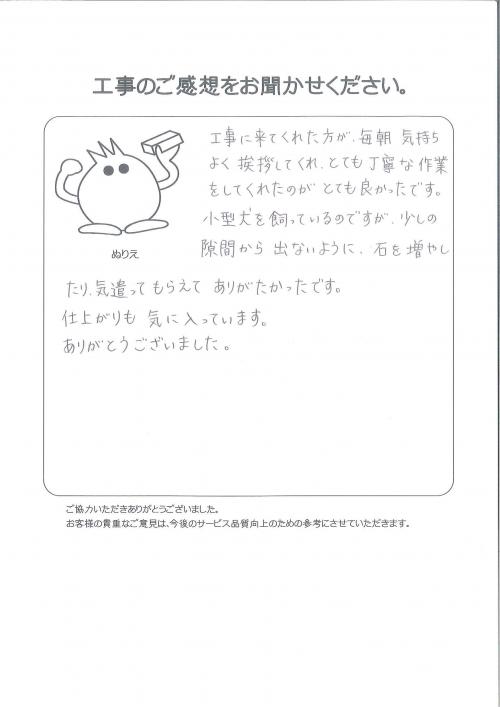 工事のご感想をお聞かせください。
工事に来てくれた方が、毎朝 気持ち
よく挨拶してくれ、とても丁寧な作業
をしてくれたのが とても良かったです。
小型犬を飼っているのですが、少しの
隙間から 出ないように、石を増やし
ぬりえ
たり、気遣って もらえて ありがたかったです。
仕上がりも 気に入っています。
ありがとうございました。
ご協力いただきありがとうございました。
お客様の貴重なご意見は、今後のサービス品質向上のための参考にさせていただきます。